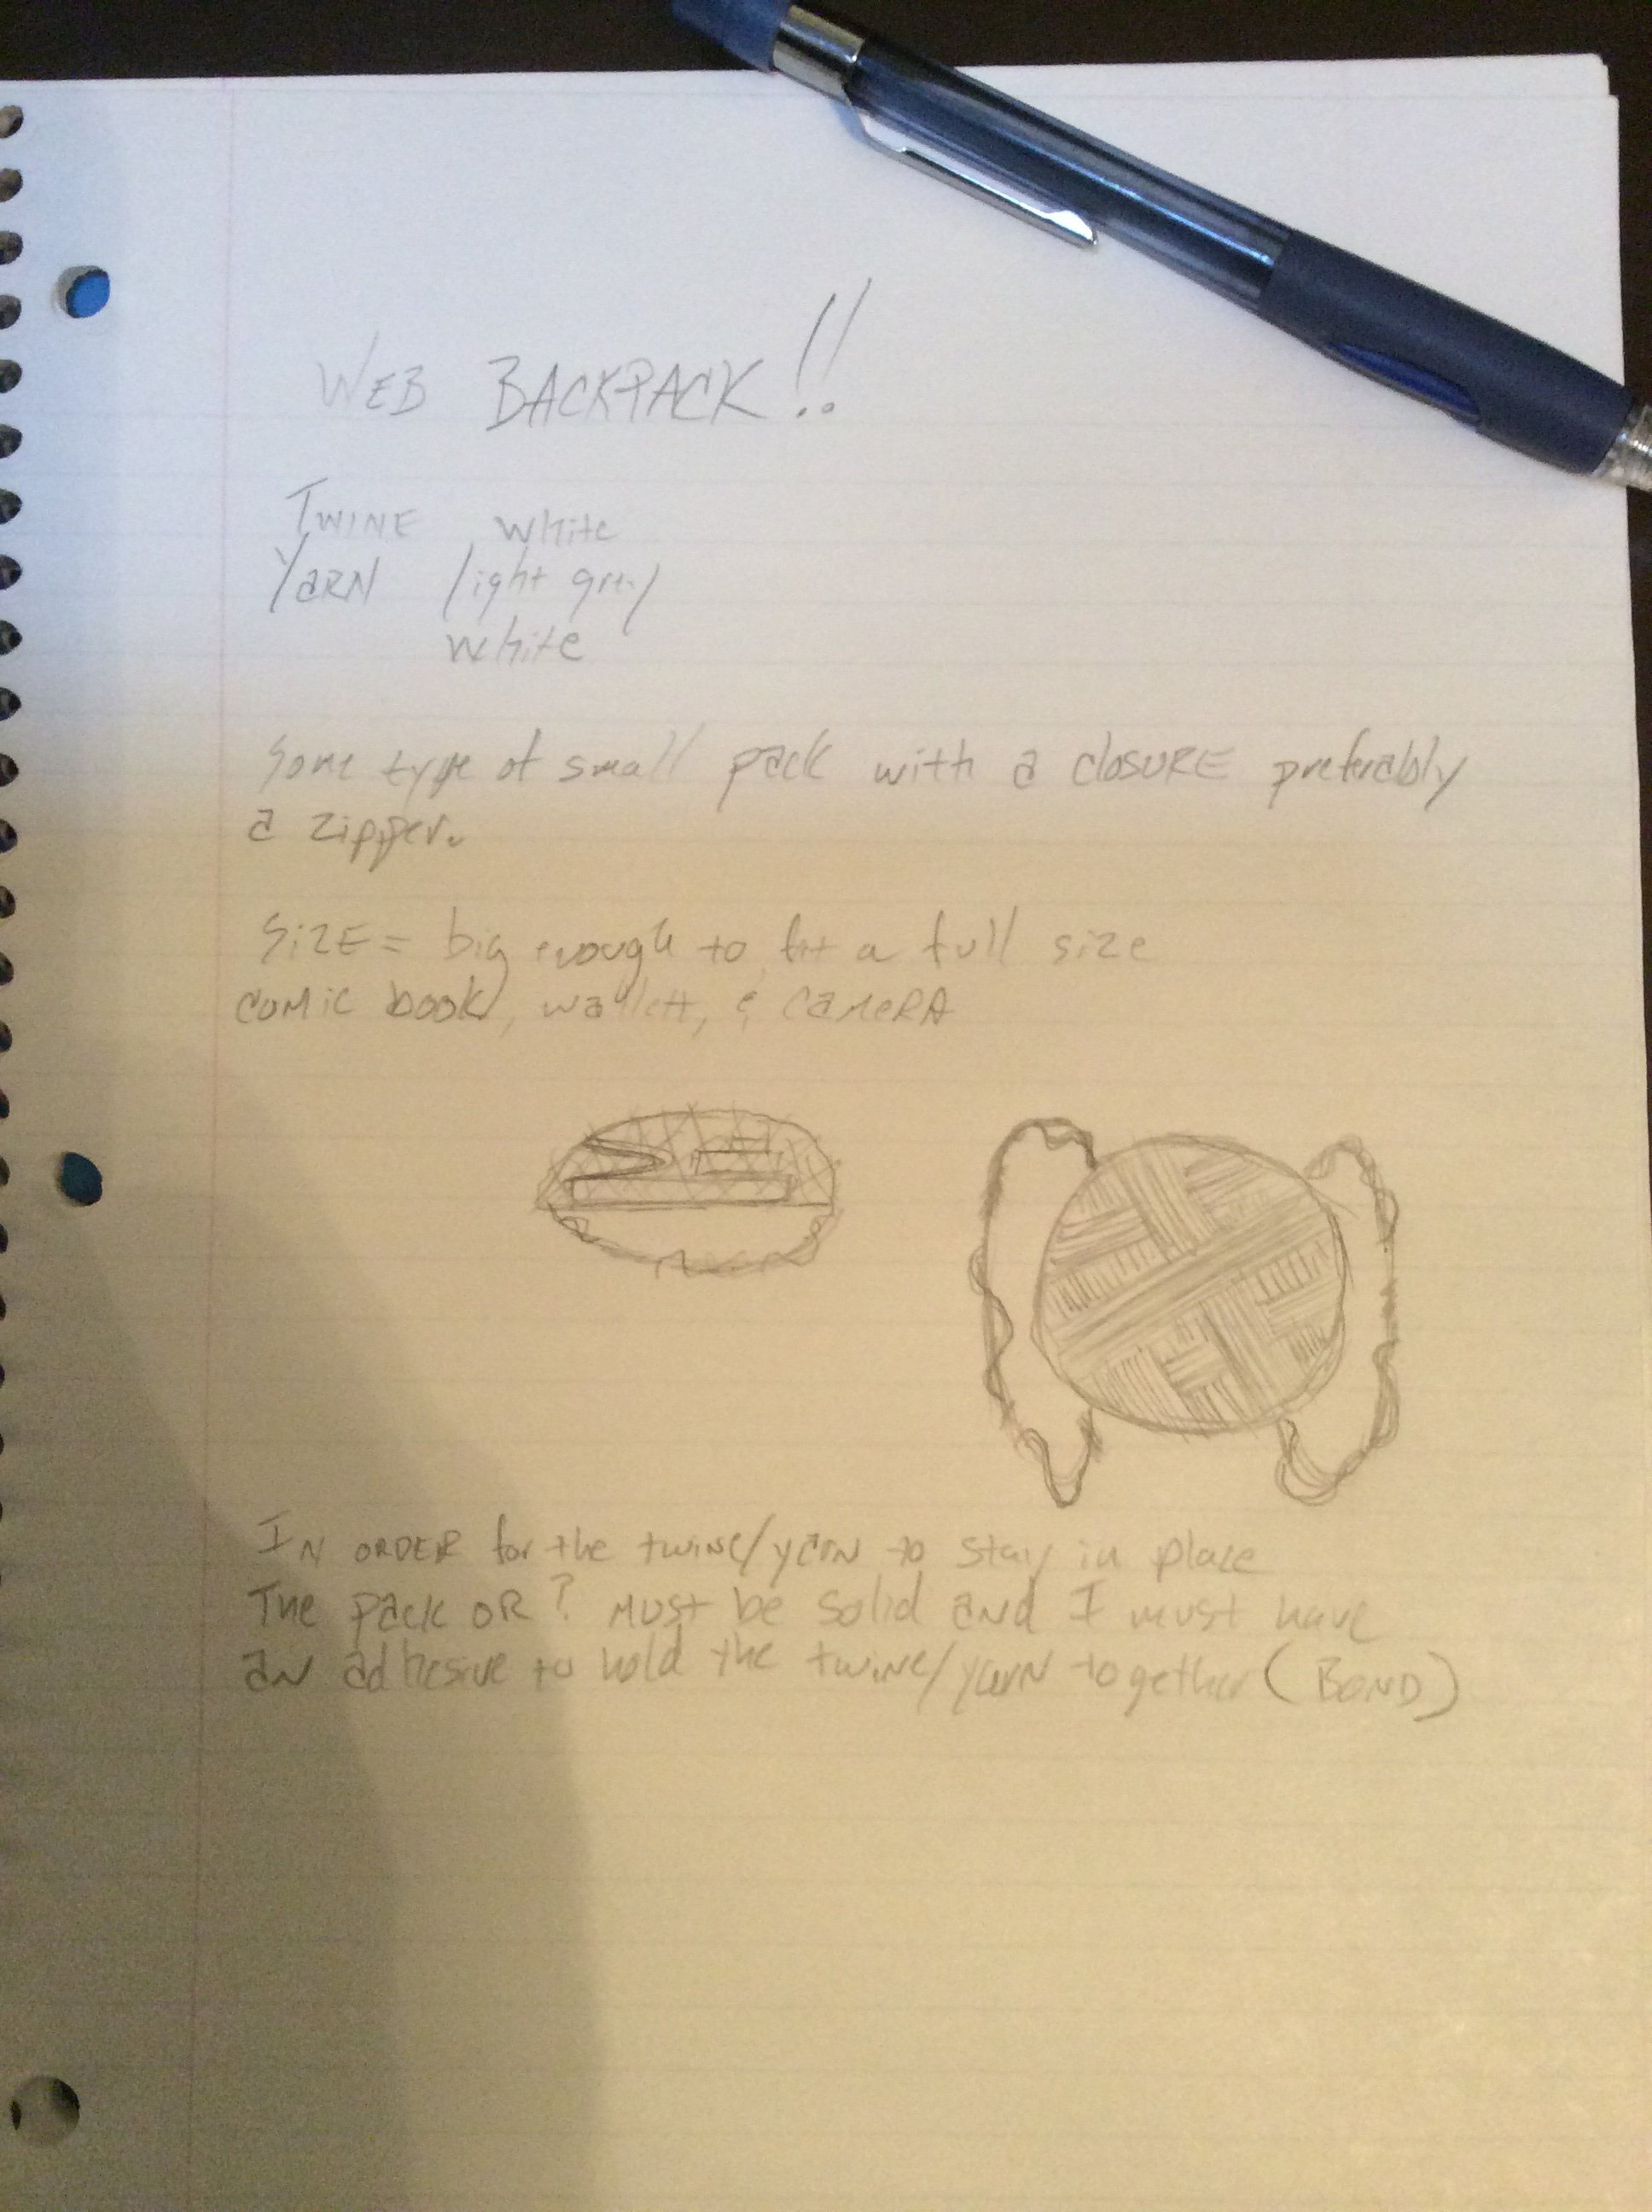 WEB BACKPACK!!
TWINE white
YARN light grey
white
Some type of small pack with a closURE preferably
a zipper.
SIZE = big enough to fit a full size
comic book, wallett, & CAMERA
IN ORDER for the twine/yarn to stay in place
The pack OR? MUST be solid and I must have
AN adhesive to hold the twine/yarn together (BOND)